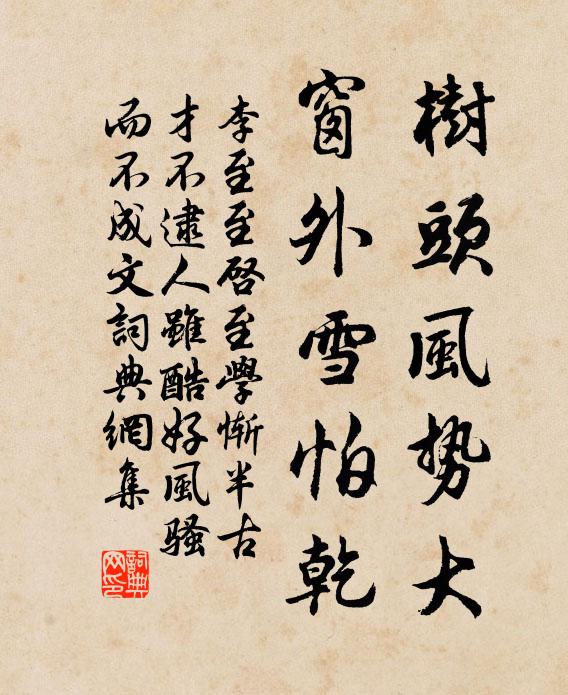 樹頭風勢大
窗外雪怕乾
李至至啓至學慚半古
才不逮人雖酷好風騷
而不成文詞典網集
詞典
网印